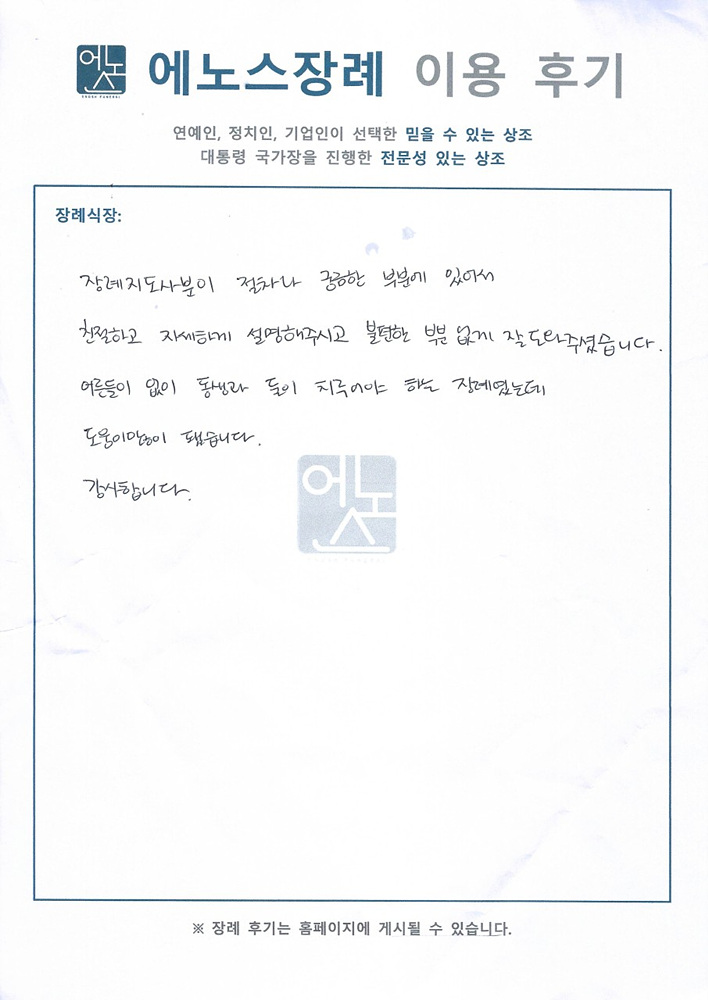 에노스
ENOSX FUNERAL
에노스장례 이용 후기
연예인, 정치인, 기업인이 선택한 믿을 수 있는 상조
대통령 국가장을 진행한 전문성 있는 상조
장례식장:
장례지도사분이 절차나 궁금한 부분에 있어서
친절하고 자세하게 설명해주시고 불편한 부분 없게 잘 도와주셨습니다.
어른들이 없이 동생과 둘이 치루어야 하는 장례였는데
도움이많이 됐습니다.
감사합니다.
에노스
※ 장례 후기는 홈페이지에 게시될 수 있습니다.